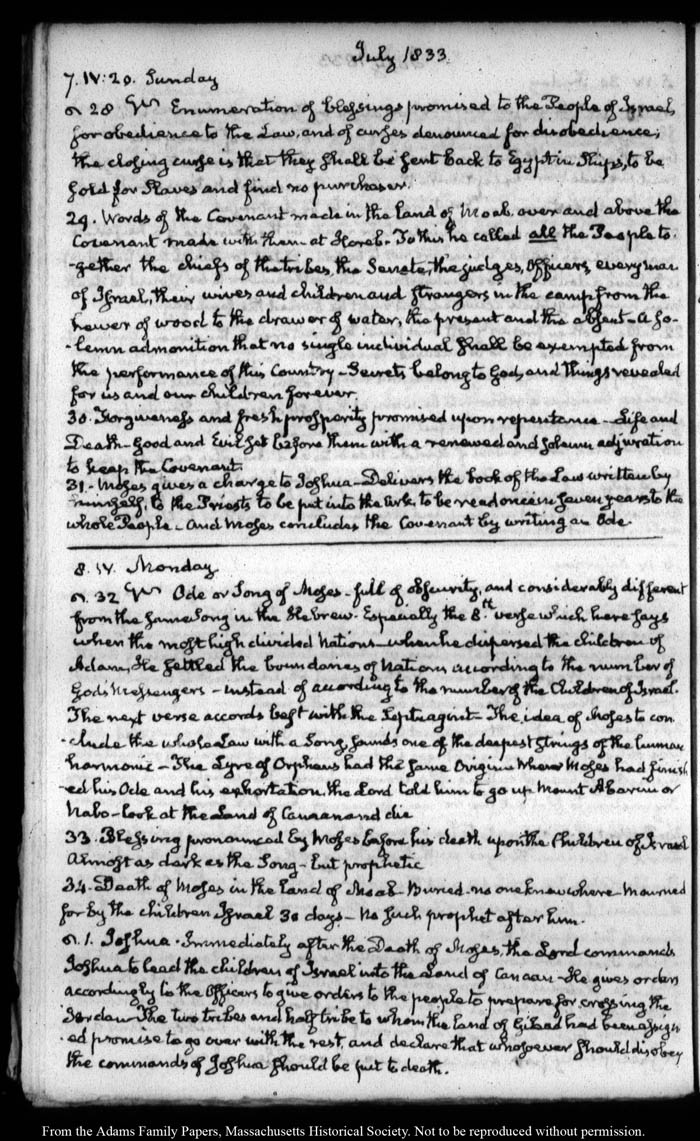 July 1833.
7. IV: 20. Sunday
28 Enumeration of blessings promised to the People of Israel,
for obedience to the Law, and of curses denounced for disobedience;
the closing curse is that they shall be sent back to Egypt in Ships, to be
sold for Slaves and find no purchaser.
29. Words of the Covenant made in the land of Moab. over and above the
Covenant made with them at Horeb. To this he called all the People to-
-gether the chiefs of the tribes, the Senate, the judges, Officers, every man
of Israel, their wives and children and strangers in the camp from the
hewer of wood to the drawer of water, the present and the absent - a so-
-lemn admonition that no single individual shall be exempted from
the performance of this Country - Secrets belong to God, and things revealed
for us and our children forever.
30. Forgiveness and fresh prosperity promised upon repentance - Life and
Death - Good and Evil set before them with a renewed and solemn adjuration
to keep the Covenant.
31. - Moses gives a charge to Joshua - Delivers the book of the Law written by
himself, to the Priests to be put into the Ark, to be read once in seven years to the
whole People - And Moses concludes the Covenant by writing an Ode.
8. IV. Monday
32 Ode or Song of Moses - full of obscurity, and considerably different
from the same song in the Hebrew. Especially the 8th verse which here says
when the most high divided Nations - when he dispersed the children of
Adam, He settled the boundaries of Nations according to the number of
Gods Messengers - instead of according to the number of the Children of Israel.
The next verse accords best with the Septuagint - The idea of Moses to con
-clude the whole Law with a Song, sounds one of the deepest strings of the human
harmonic - The Lyre of Orpheus had the same Origin. When Moses had finish
-ed his Ode and his exhortation, the Lord told him to go up Mount Abarim or
Nabo - look at the Land of Canaan and die
33. Blessing pronounced by Moses before his death upon the Children of Israel
Almost as dark as the Song - but prophetic
34. Death of Moses in the land of Moab - Buried no one knew where - Mourned
for by the children Israel 30 days - No such prophet after him.
1. Joshua. Immediately after the Death of Moses, the Lord commands
Joshua to lead the children of Israel into the Land of Canaan - He gives orders
accordingly to the Officers to give orders to the people to prepare for crossing the
Jordan - The two tribes and half tribe to whom the land of Gilead had been assign
-ed promise to go over with the rest, and declare that whosoever should disobey
the commands of Joshua should be put to death.
From the Adams Family Papers, Massachusetts Historical Society. Not to be reproduced without permission.